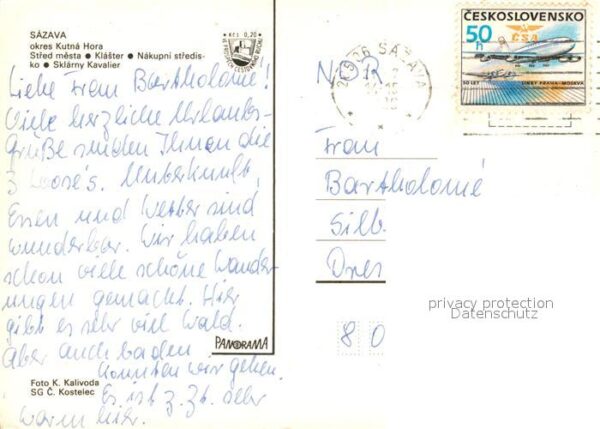 SÁZAVA
okres Kutná Hora
Střed města ● Klášter ● Nákupní středis-
ko ● Sklárny Kavalier
Kčs 0,20
Liebe Frau Bartholomé!
Viele herzliche Urlaubs-
grüße senden Ihnen die
3 Loose's. Unterkunft,
Essen und Wetter sind
wunderbar. Wir haben
schon viele schöne Wander-
ungen gemacht. Hier
gibt es sehr viel Wald.
Aber auch baden
konnten wir gehen.
Es ist z. Zt. sehr
warm hier.
PANORAMA
Foto K. Kalivoda
SG Č. Kostelec
285 06 SÁZAVA
ČESKOSLOVENSKO
50 h
ČSA
50 LET LINKY PRAHA-MOSKVA
Frau
Bartholomé
Silb
Dres
80
privacy protection
Datenschutz